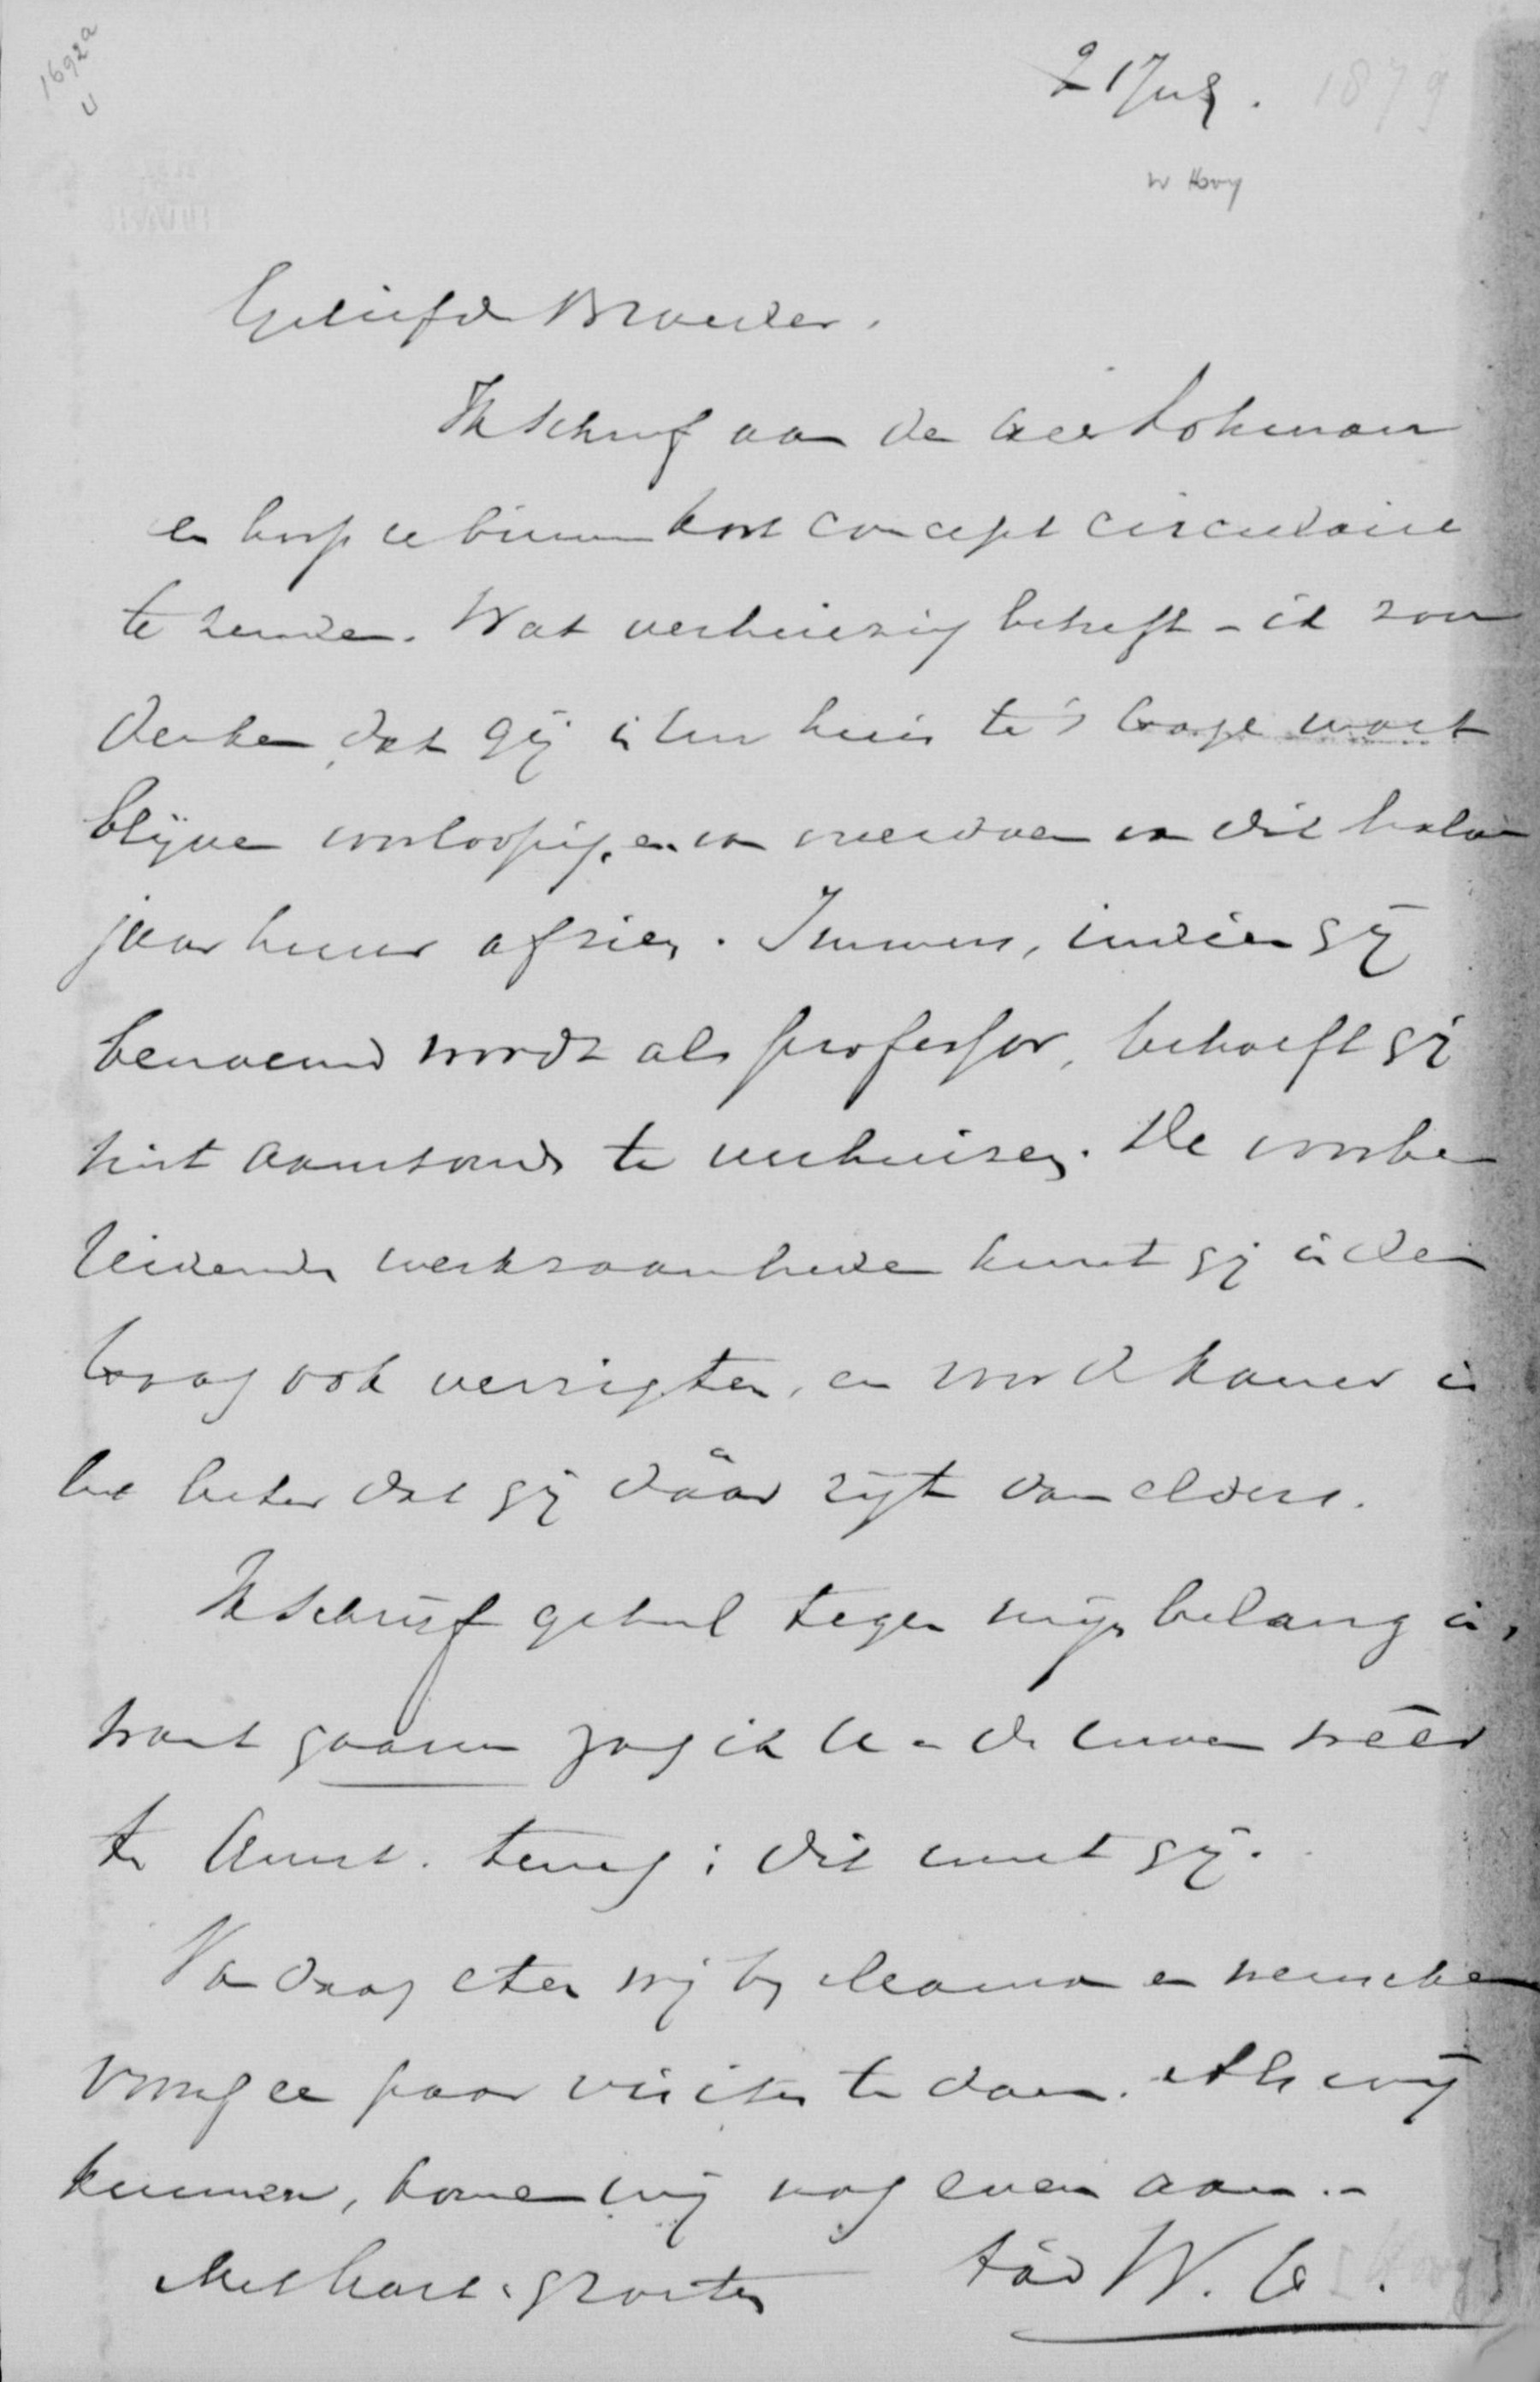 1692a
U
21 July. 1879
W Hovy
Geliefde Broeder.
Ik schreef aan de Heer Lohman
en hoop u binnen kort concept circulaire
te zenden. Wat verhuizing betreft - ik zou
denken, dat gij in uw huis te 's Hage moet
blijven voorloopig, en van meerdoen van dit halve
jaar huur afzien. Immers, indien gij
benoemd wordt als professor, behoeft gij
niet aanstonds te verhuizen. De voorbe
reidende werkzaamheden kunt gij in den
Haag ook verrigten, en voor de Kamer is
het beter dat gij dáár zijt dan elders.
Ik schrijf geheel tegen mijn belang in,
want gaarne zag ik U en de uwen wéér
te Amst. terug; dit weet gij.
Van daag eten wij bij Mama en wenschen
vooraf een paar visites te doen. Als wij
kunnen, komen wij nog even aan.-
Met hart. groeten
táv W. H.